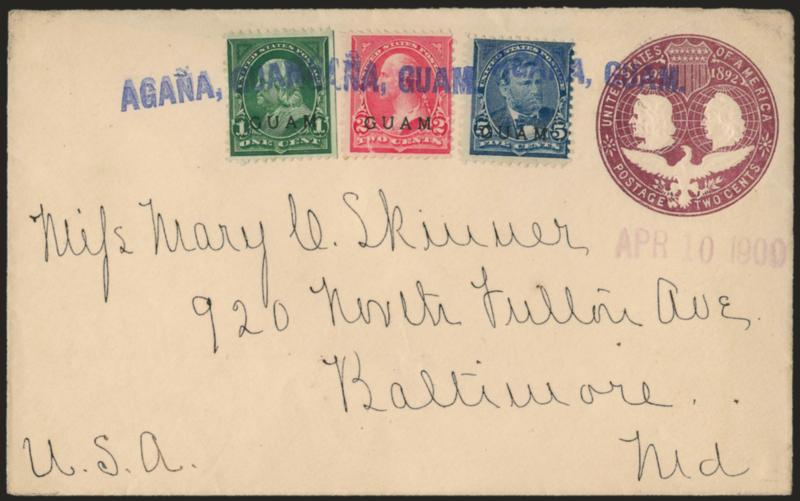 AGAÑA, GUAM. AGAÑA, GUAM. AGAÑA, GUAM.
UNITED STATES POSTAGE
1 GUAM 1
ONE CENT
UNITED STATES POSTAGE
2 GUAM 2
TWO CENTS
UNITED STATES POSTAGE
5 GUAM 5
FIVE CENTS
UNITED STATES OF AMERICA
1892
POSTAGE TWO CENTS
APR 10 1900
Miss Mary C. Skinner
920 North Fulton Ave.
Baltimore.
Md
U.S.A.